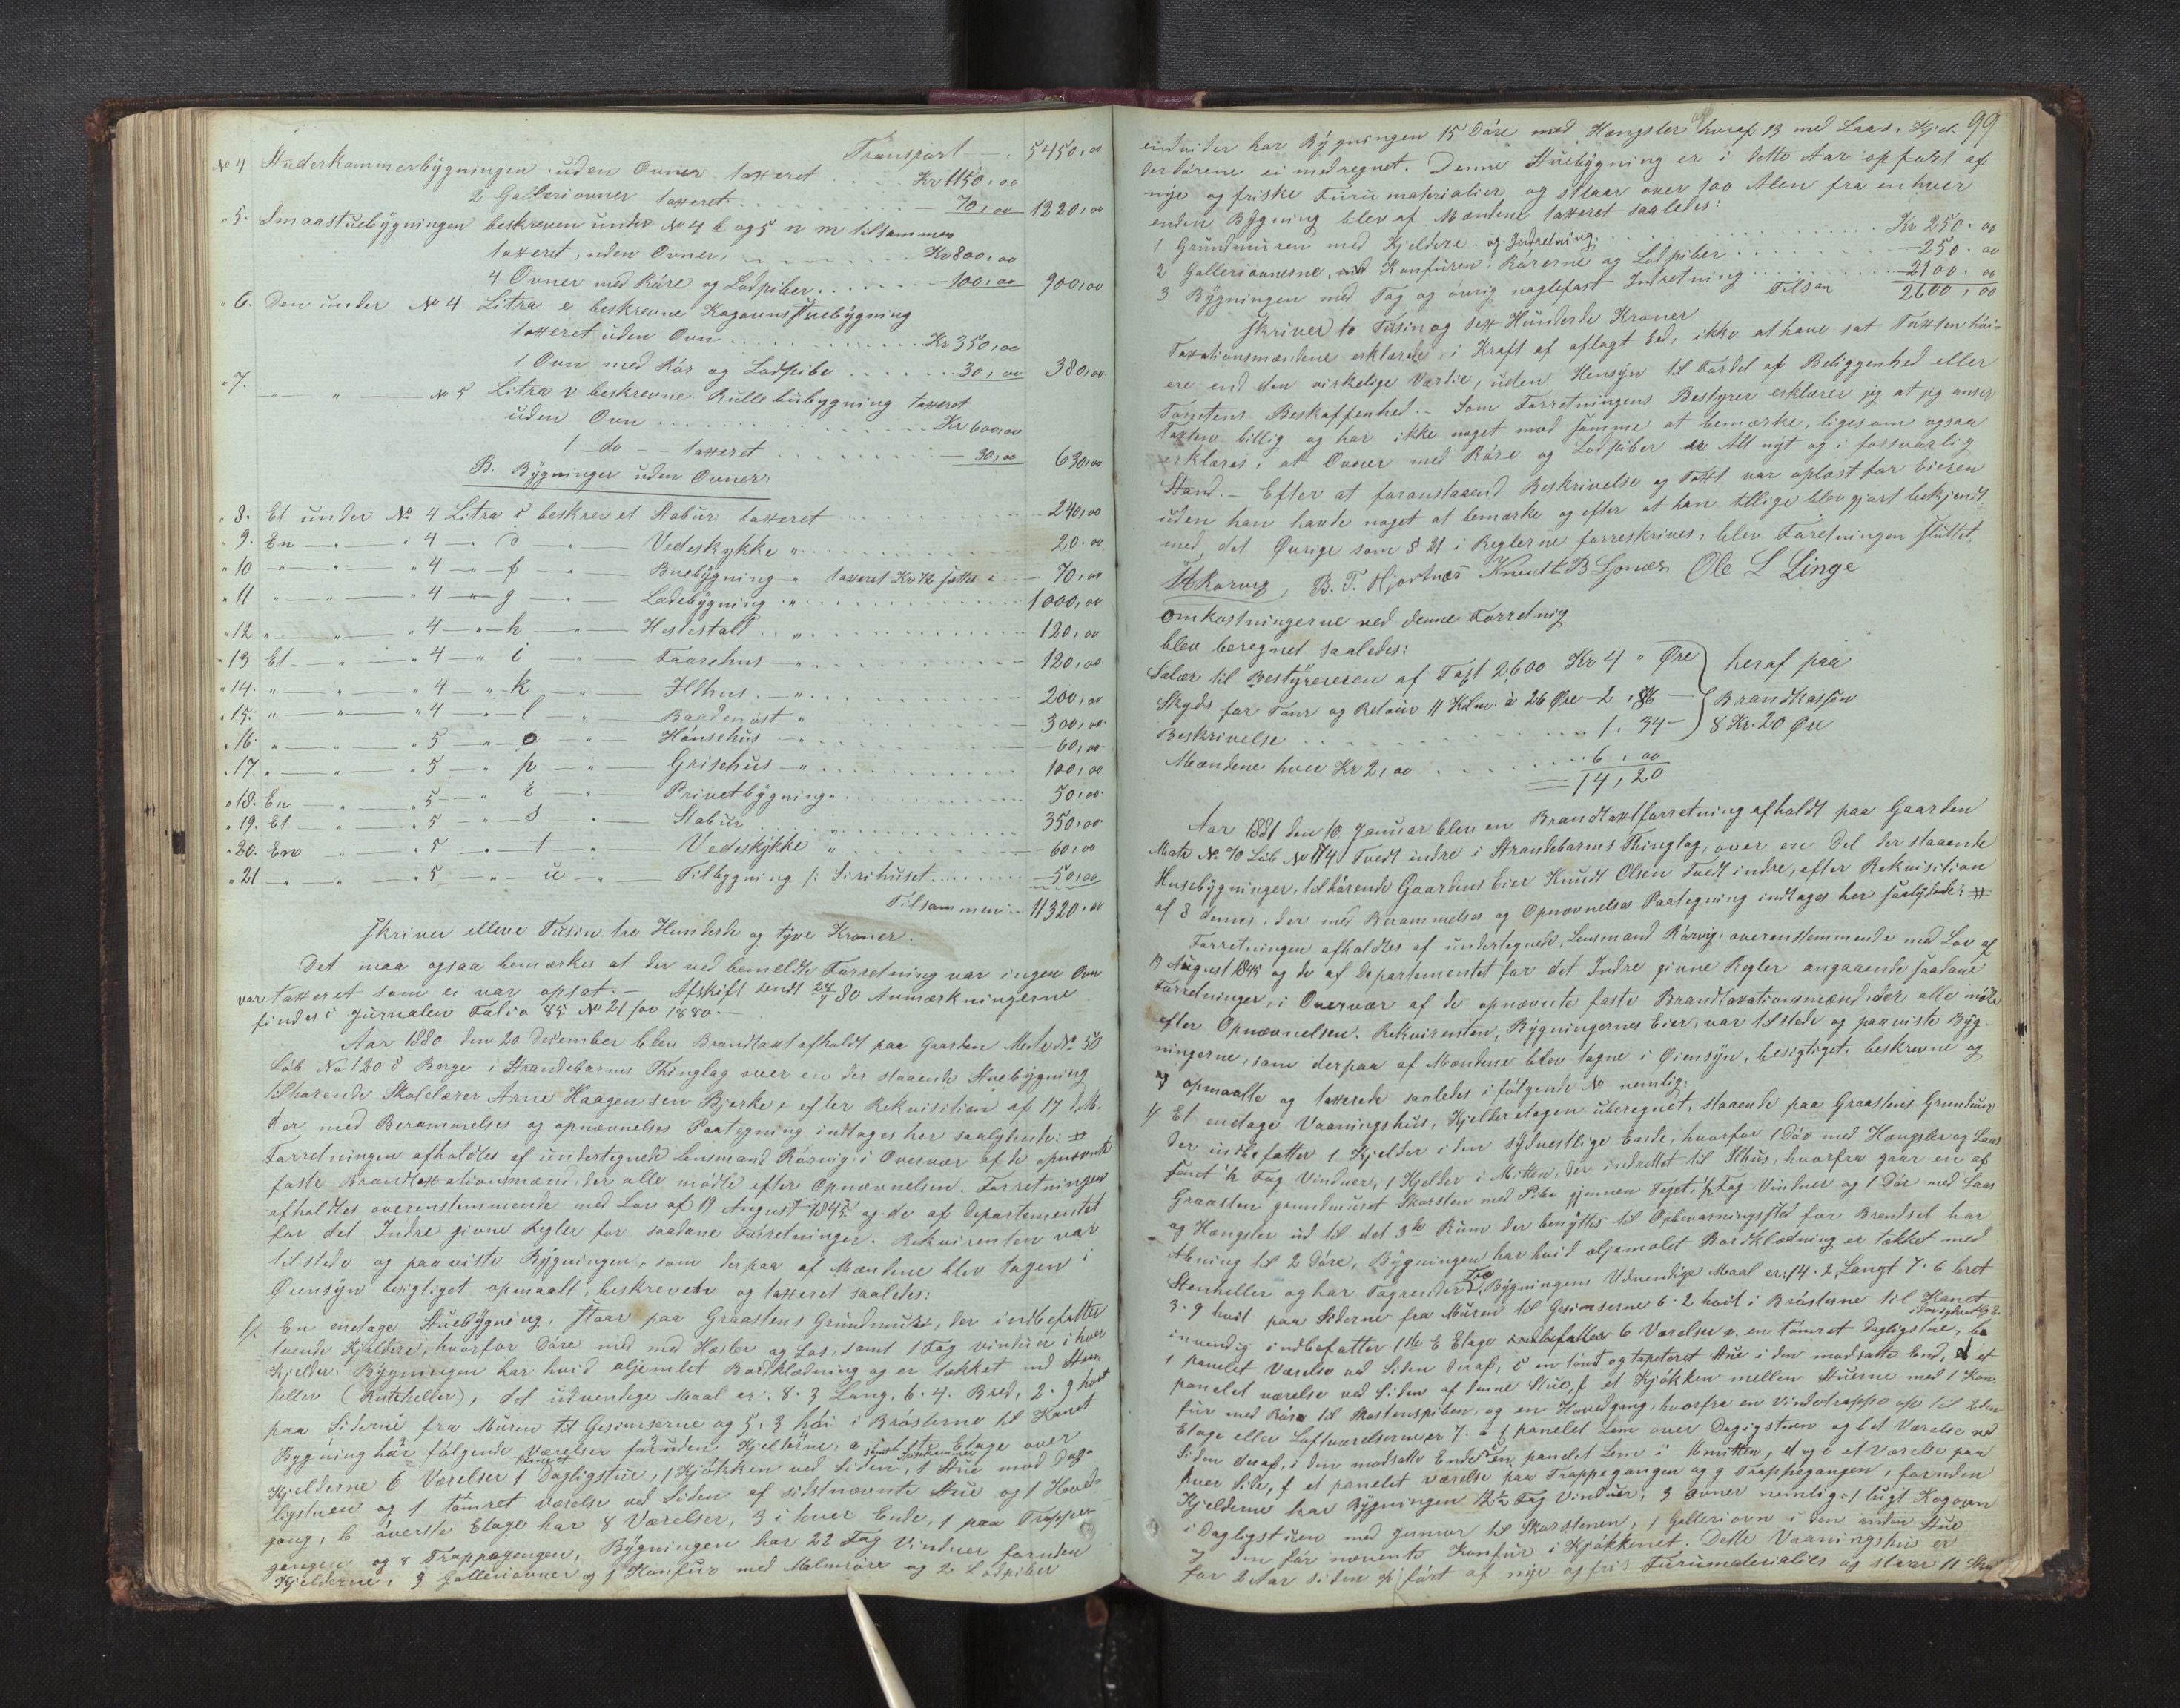 Transport — 5450,00
No 4 Huderkammerbygningen uden Ovner taxeret . . . Kr 1150,00
2 Galleriovner taxeret . . . 70,00 1220,00
" 5. Smaastuebygningen beskreven under No 4 b og 5 n m tilsammen
taxeret, uden Ovner, . . . Kr 800,00
4 Ovner med Röre og Lodpiber . . . 100,00 900,00
" 6. Den under No 4 Litra e beskrevne Kogovnstuebygning
taxeret uden Ovn . . . Kr 350,00
1 Ovn med Rör og Lodpibe . . . 30,00 380,00
" 7. — " — No 5 Litra v beskrevne Rullebubygning taxeret
uden Ovn . . . Kr 600,00
1 do — taxeret . . . 30,00 630,00
B. Bygninger uden Ovner:
" 8. Et under No 4 Litra c beskrevet Stabur taxeret . . . 240,00
" 9. En — " 4 — d — Vedeskykke " . . . 20.00
" 10 " — " 4 — f — Buebygning — taxeret Kr 72 sættes i — 70,00
" 11 " — " 4 — g — Ladebygning " . . . 1000,00
" 12 " — " 4 — h — Hestestald . . . 120,00
" 13 Et — " 4 — i — Faarehus — " . . . 120,00
" 14. " — " 4 " k — Ildhus — " . . . 200,00
" 15. " — " 4 — l — Baadenöst " . . . 300,00
" 16. " — " 5 — o — Hönsehus — " . . . 60,00
" 17. " — " 5 — p — Grisehus — " . . . 100,00
" 18. En — " 5 — r — Privetbygning " . . . 50,00
" 19. Et — " 5 — s — Stabur " . . . 350,00
" 20. En — " 5 — t — Vedeskykke " . . . 60,00
" 21 " — " 5 — u — Tilbygning /: Sirihuset . . . 50,00
Tilsammen — 11320,00
skriver elleve Tusin tre Hunderde og tyve Kroner.
Det maa ogsaa bemærkes at der ved bemeldte Forretning var ingen Ovn
var taxeret som ei var opsat. — Afskift sendt 28/7 80 Anmærkningerne
findes i Jurnalen Folio 85 No 21 for 1880. —
Aar 1880 den 20 December blev Brandtaxt afholdt paa Gaarden Matr No 50
Löb No 120 c Berge i Strandebarms Thinglag over en der staaende Stuebygning
tilhörende Skolelærer Arne Haagensen Bjerke, efter Rekvisition af 17 d. M.
der med Berammelses og opnævnelses Paategning indtages her saalydende:
Forretningen afholdtes af undertegnede Lensmand Rörvig i Overvær af de opnævnte
faste Brandtaxationsmænd, der alle mödte efter Opnævnelsen. Forretningen
afholdtes overenstemmende med Lov af 19 August 1845 og de af Departementet
for det Indre givne Regler for saadane Forretninger. Rekvirenten var
tilstede og paaviste Bygningen, som derpaa af Mændene blev tagen i
Öiensyn besigtiget opmaalt, beskreven og taxeret saaledes:
1/. En enetage Stuebygning, staar paa Graastens Grundmure, der indbefatter
tvende Kjeldere, hvorfor Döre med med Hasler og Las, samt 1 Fag vinduer i hver
Kjelder. Bygningen har hvid oljemlet Bordklædning og er tækket med Sten
heller (Ruteheller), det udvendige Maal er: 8.3 Lang, 6.4. Bred, 2.9 höit
paa Siderne fra Muren til Gesimserne og 5.3 höi i Brösterne til Kanet
Bygning har fölgende Værelser foruden Kjelderne, a i 1ste Etage over
Kjelderne 6 Værelser 1 tömret Dagligstue, 1 Kjökken ved Siden, 1 Stue mod Dag-
ligstuen og 1 tömret Værelse ved Siden af sidstnævnte Stue og 1 Hoved-
gang, b överste Etage har 8 Værelser, 3 i hver Ende, 1 paa Trappe
gangen og 1 Trappegangen, Bygningen har 22 Fag Vinduer foruden
Kjelderne, 3 Galleriovner og 1 Konfur med Malmröre og 2 Lodpiber
99
endvider har Bygningen 15 Döre med Hængsler og hvoraf 13 med Laas, Kjel-
derdörene ei medregnet. Denne Stuebygning er i dette Aar opfört af
nye og friske Furumaterialier og staar over 100 Alen fra enhver
enden Bygning blev af Mændene taxeret saaledes:
1 Grundmuren med Kjeldere og Indretning. . . . Kr 250.00
2 Galleriovnerne, med Konfuren, Rörerne og Lodpiber . . . 250.00
3 Bygningen med Tag og övrig naglefast Indretning . . . 2100.00
Tilsam 2600,00
skriver to Tusin og sex Hunderde Kroner
Taxationsmændene erklærede, i Kraft af aflagt Ed, ikke at have sat Taxten höi-
ere end den virkelige Værdie, uden Hensyn til Fordel af Beliggenhed eller
Tomtens Beskaffenhed. — Som Forretningens Bestyrer erklærer jeg at jeg anser
Taxten billig og har ikke noget mod samme at bemærke, ligesom ogsaa
erklæres, at Ovner med Röre og Lodpiber er Alt nyt og i forsvarlig
Stand. — Efter at foranstaaend Beskrivelse og Taxt var oplæst for Eieren
uden han havde noget at bemærke og efter at han tillige blev gjort bekjendt
med det Övrige som § 21 i Reglerne foreskrives, blev Forretningen sluttet.
B. T. Hjortnæs Knudt B Ljones Ole L Linge
Omkostningerne ved denne Forretnig
blev beregnet saaledes:
Salær til Bestyreren af Taxt 2600 Kr 4 " Öre heraf paa
Skyds for Tour og Retour 11 Kilm. à 26 Öre — 2,86 — Brandkassen
Beskrivelse . . . 1.34 — 8 Kr. 20 Öre
Mændene hver Kr 2,00 . . . 6,00
14,20
Aar 1881 den 10. Januar blev en Brandtaxtforretning afholdt paa Gaarden
Matr No. 70 Löb No 174 Tvedt indre i Strandebarms Thinglag, over en Del der staaende
Husebygninger, tilhörende Gaardens Eier Knudt Olsen Tvedt indre, efter Rekvisition
af 8 dennes, der med Berammelses og Opnævnelses Paategning indtages her saalydende:
Forretningen afholdtes af undertegnede, Lensmand Rörvig, overenstemmende med Lov af
19 August 1845 og de af Departementet for det Indre givne Regler angaaende saadane
Forretninger, i Overvær af de opnævnte faste Brandtaxationsmænd, der alle mödte
efter Opnævnelsen. Rekvirenten, Bygningernes Eier, var tilstede og paaviste Byg-
ningerne, som derpaa af Mændene blev tagne i Öiensyn, besigtiget, beskrevne og
og opmaalte og taxerede saaledes i fölgende No nemlig:
1/. Et enetage Vaaningshus, Kjelleretagen uberegnet, staaende paa Graastens Grundmur
der indbefatter 1 Kjelder i den sydvestlige Ende, hvorfor 1 Dör med Hængsler og Laas
samt ½ Fag Vinduer, 1 Kjelder i Mitten, der indrettet til Ilhus, hvorfra gaar en af
Graasten grundmuret Skorsten med Pibe gjennem Taget, ½ Fag Vinduer og 1 Dör med Laas
og Hængsler ud til det 3de Rum der benyttes til Opbevaringsted for Brendsel har
Abning til 2 Döre, Bygningen har hvid oljemalet Bordklædning er tækket med
Stenheller og har Tagrender Træ, Bygningens Udvendige Maal er: 14.2 Langt 7.6 bret
3.9 höit paa Siderne fra Muren til Gesimserne 6.2 höit i Brösterne til Kanet
invendig indbefatter 1ste Etage 6 Værelser a. en tömret Dagligstue, b
1 panelet Værelse ved Siden deraf, c en tömt og tapeteret Stue i den modsatte End, d et
panelet værelse ved Siden af denne Stue, f et Kjökken mellem Stuerne med 1 Kon-
fur med Röre til Skorstenspiben, og en Hovedgang, hvorfra en Vindetrappe op til 2den
Etage eller Loftværelserne er 7. a 1 panelet Lem over Dagligstuen og b et Værelse ved
Siden deraf, i den modsatte Ende c en panelet Lem i Mitten, d og e et Værelse paa
hver Side, f et panelet værelse paa Trappegangen og g Trappegangen, foruden
Kjelderne har Bygningen 12½ Fag Vinduer, 3 Ovner nemlig: 1 lugt Kogovn
i Dagligstuen med til Skorstenen, 1 Galleriovn i den anden Stue
og den för nævnte Konfur i Kjökkenet. Dette Vaaningshus er
for 2 Aar siden opfört af nye og fris Furumaterialier og staar 11